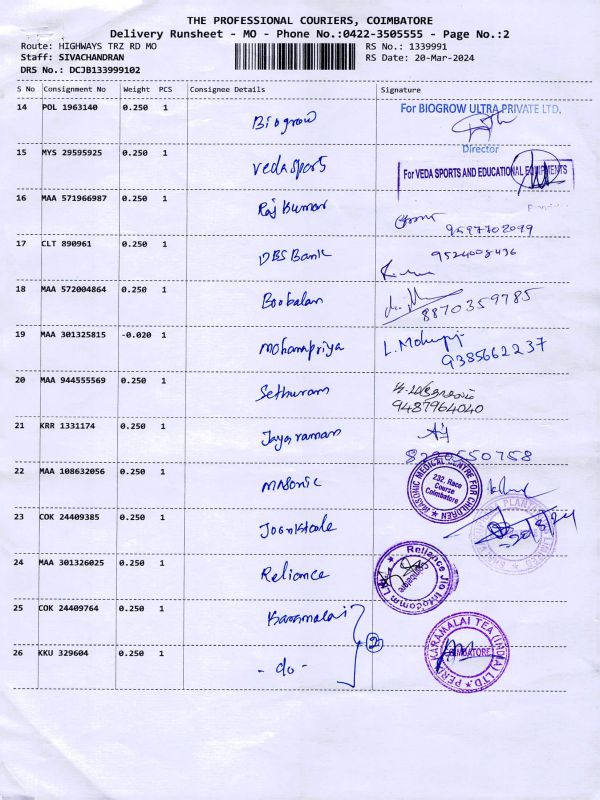 THE PROFESSIONAL COURIERS, COIMBATORE
Delivery Runsheet - MO - Phone No.:0422-3505555 - Page No.:2
Route: HIGHWAYS TRZ RD MO
RS No.: 1339991
Staff: SIVACHANDRAN
RS Date: 20-Mar-2024
DRS No.: DCJB133999102
S No Consignment No Weight PCS Consignee Details Signature
14 POL 1963140 0.250 1 Biogrow
For BIOGROW ULTRA PRIVATE LTD.
Director
15 MYS 29595925 0.250 1 Veda Sports
For VEDA SPORTS AND EDUCATIONAL EQUIPMENTS
16 MAA 571966987 0.250 1 Raj Kumar
9597702099
17 CLT 890961 0.250 1 DBS Bank
9524008436
18 MAA 572004864 0.250 1 Boobalan
8870359785
19 MAA 301325815 -0.020 1 Mohanapriya
9385662237
20 MAA 944555569 0.250 1 Sethuram
9487964040
21 KRR 1331174 0.250 1 Jayaraman
22 MAA 108632056 0.250 1 Masonic
MASONIC MEDICAL CENTRE FOR CHILDREN
232, Race
Course
Coimbatore
23 COK 24409385 0.250 1
20/3/24
24 MAA 301326025 0.250 1 Reliance
Reliance Jio Infocomm Ltd
25 COK 24409764 0.250 1 Karamalai
2
26 KKU 329604 0.250 1 - do -
PERIA KARAMALAI TEA (INDIA) LTD.
COIMBATORE